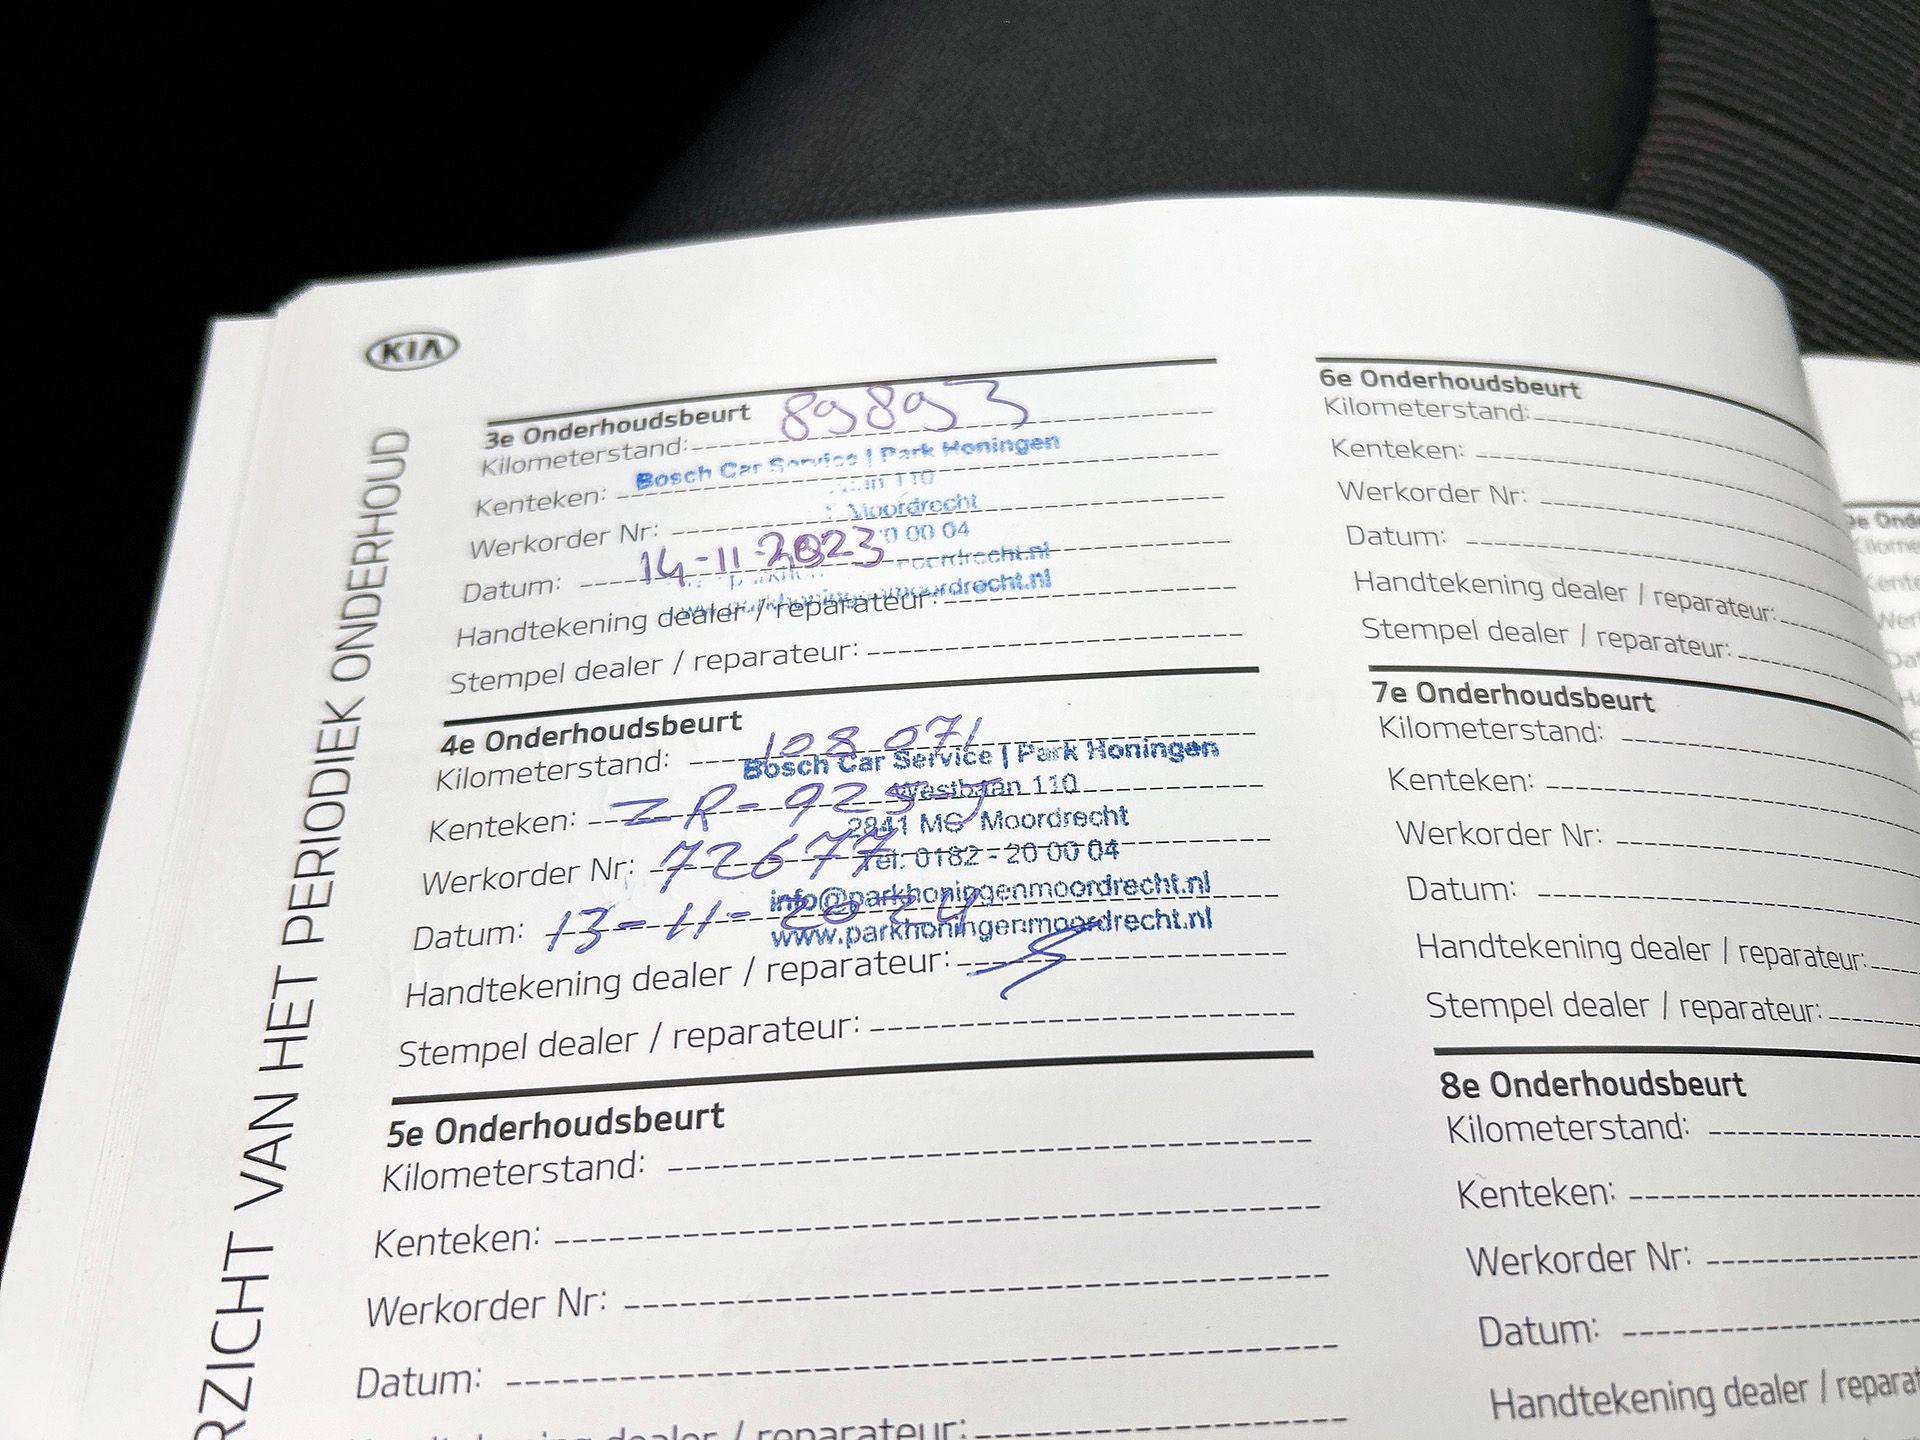 KIA
RZICHT VAN HET PERIODIEK ONDERHOUD
3e Onderhoudsbeurt
Kilometerstand: 89893
Bosch Car Service | Park Honingen
Kenteken:
110
Werkorder Nr:
Moordrecht
0 00 04
Datum: 14-11-2023
Handtekening dealer / reparateur:
Stempel dealer / reparateur:
4e Onderhoudsbeurt
Kilometerstand: 108 071
Bosch Car Service | Park Honingen
Westbaan 110
Kenteken: ZR-925-J
2841 MC Moordrecht
Werkorder Nr: 72677
Tel: 0182 - 20 00 04
info@parkhoningenmoordrecht.nl
Datum: 13-11-2024
www.parkhoningenmoordrecht.nl
Handtekening dealer / reparateur:
Stempel dealer / reparateur:
5e Onderhoudsbeurt
Kilometerstand:
Kenteken:
Werkorder Nr:
Datum:
dealer / reparateur:
6e Onderhoudsbeurt
Kilometerstand:
Kenteken:
Werkorder Nr:
Datum:
Handtekening dealer / reparateur:
Stempel dealer / reparateur:
7e Onderhoudsbeurt
Kilometerstand:
Kenteken:
Werkorder Nr:
Datum:
Handtekening dealer / reparateur:
Stempel dealer / reparateur:
8e Onderhoudsbeurt
Kilometerstand:
Kenteken:
Werkorder Nr:
Datum:
Handtekening dealer / reparat